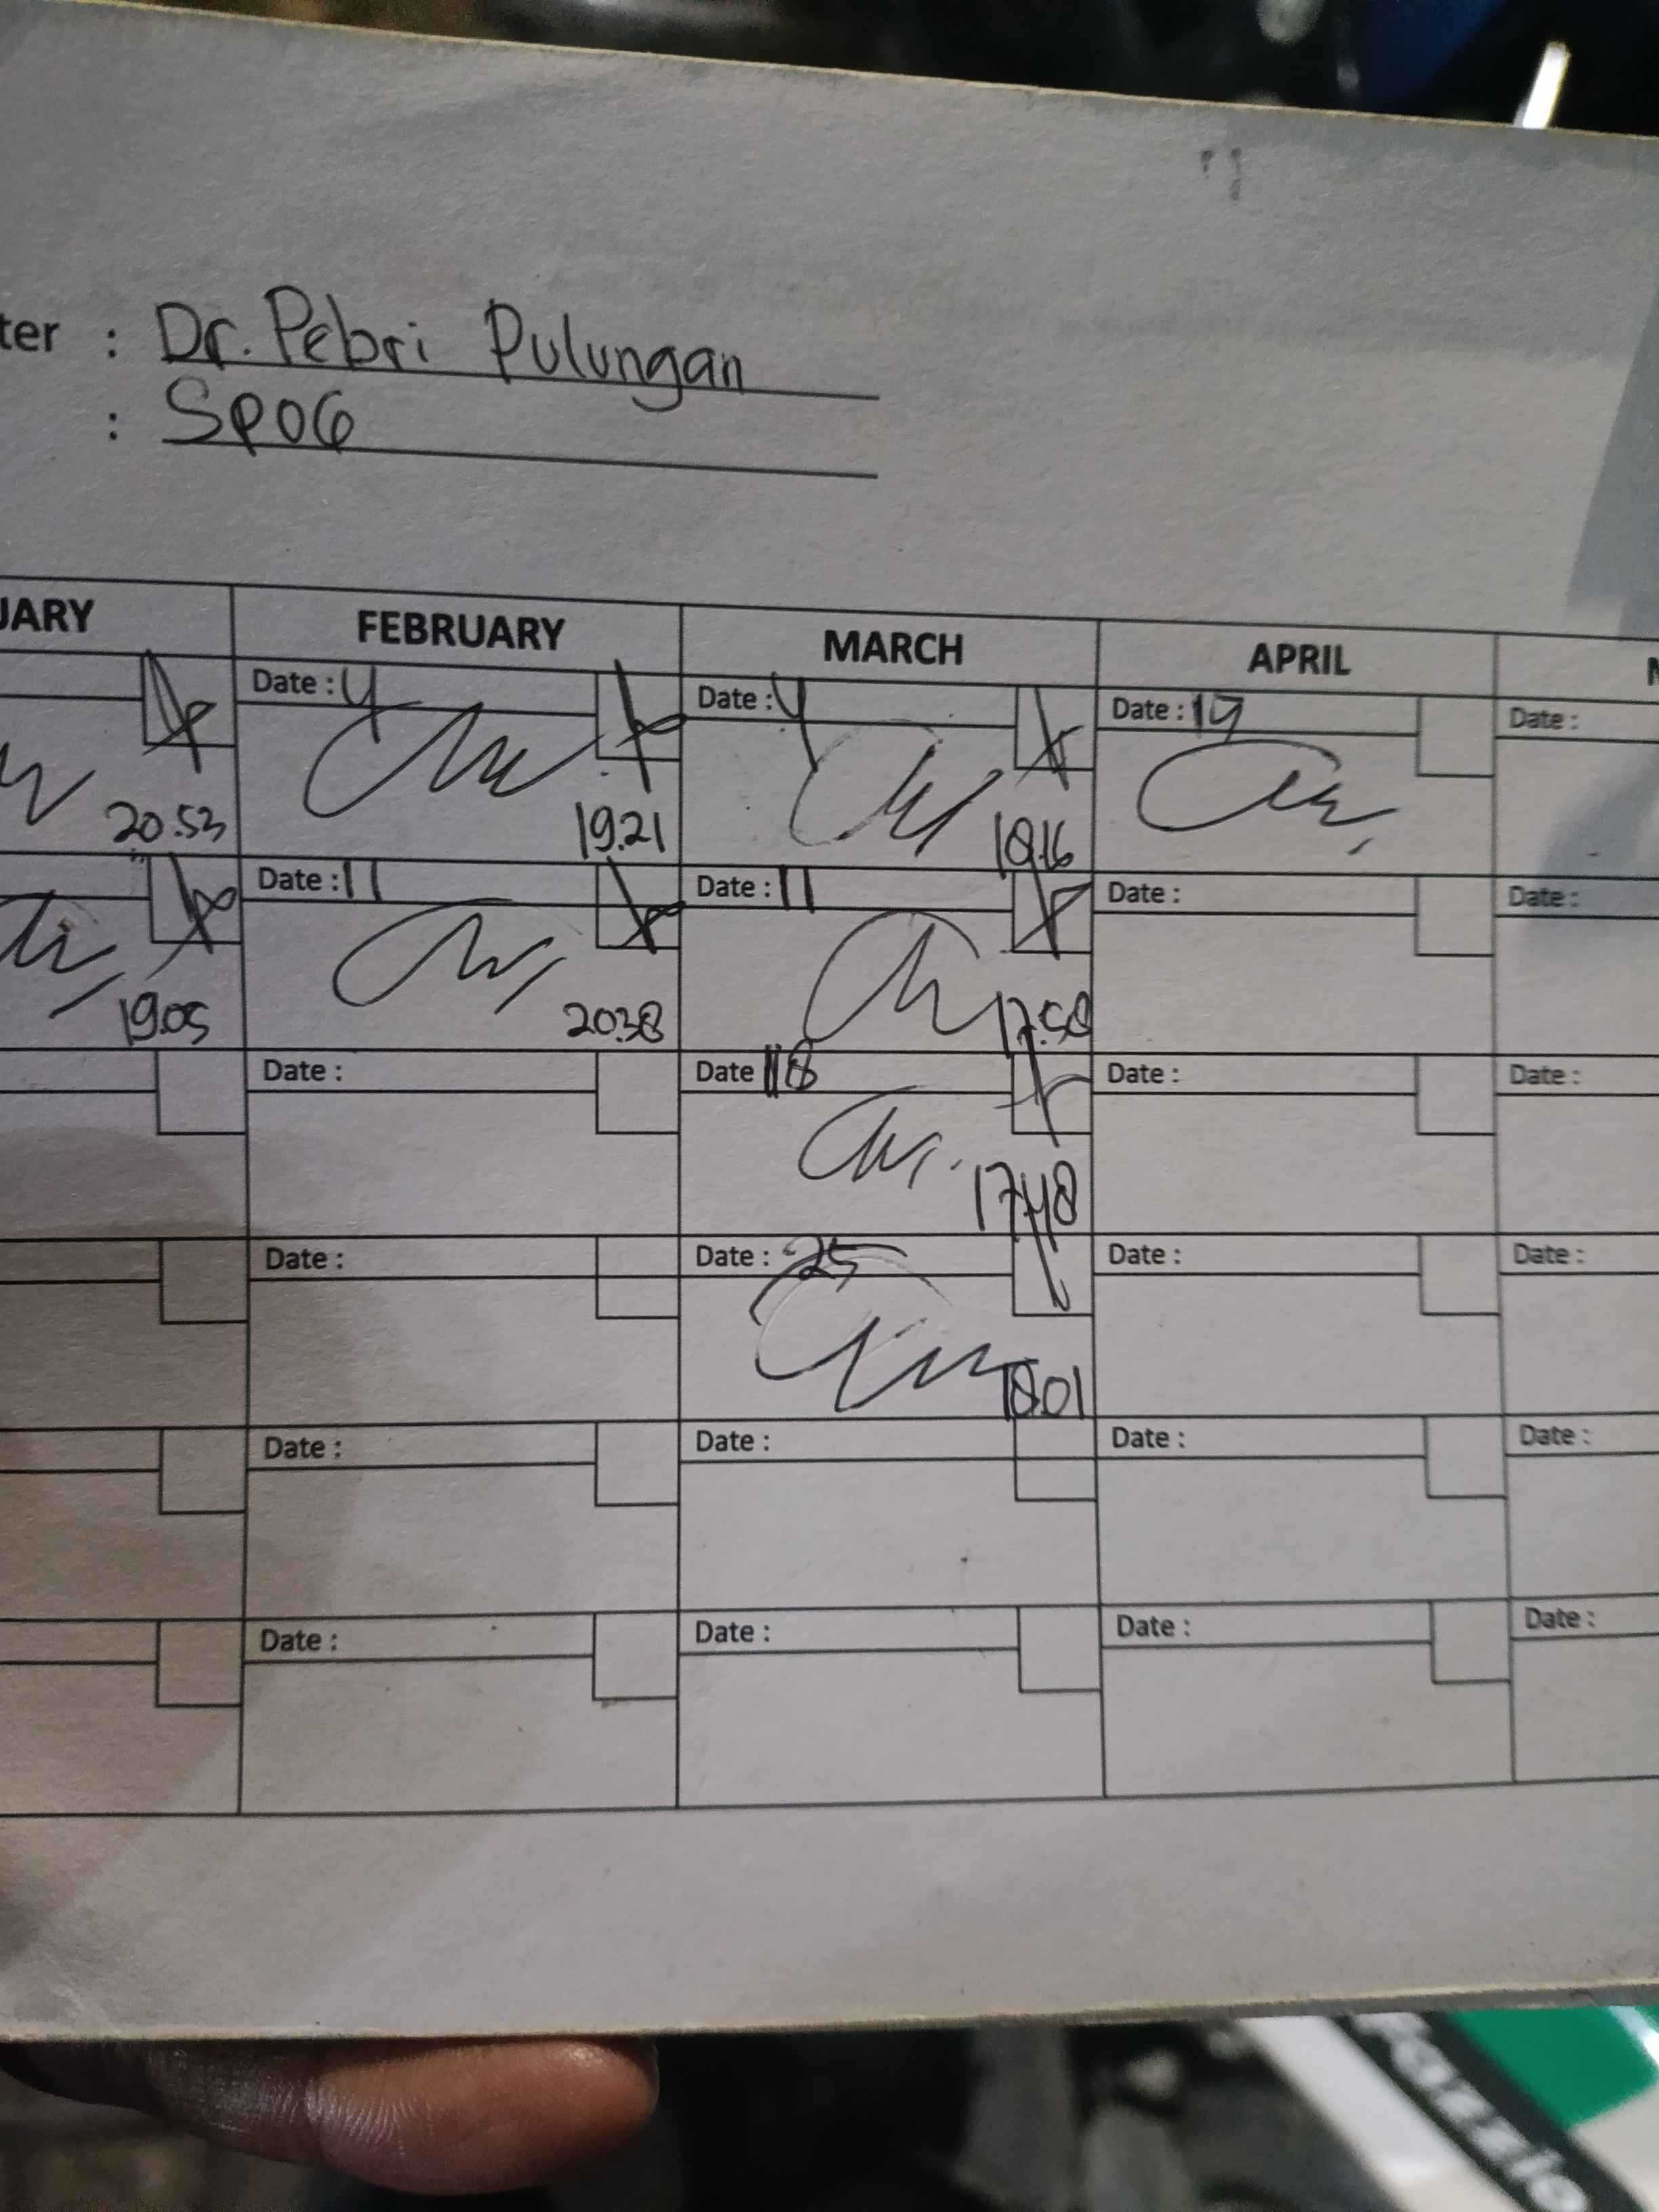 ter : Dr. Pebri Pulungan
: SPOG
UARY FEBRUARY MARCH APRIL
Date : 4 Date : 4 Date : 19 Date :
20.53 19.21 18.16
Date : 11 Date : 11 Date : Date :
19.05 20.38 17.58
Date : Date 18 Date : Date :
17.48
Date : Date : 25 Date : Date :
18.01
Date : Date : Date : Date :
Date : Date : Date : Date :
Fazzio